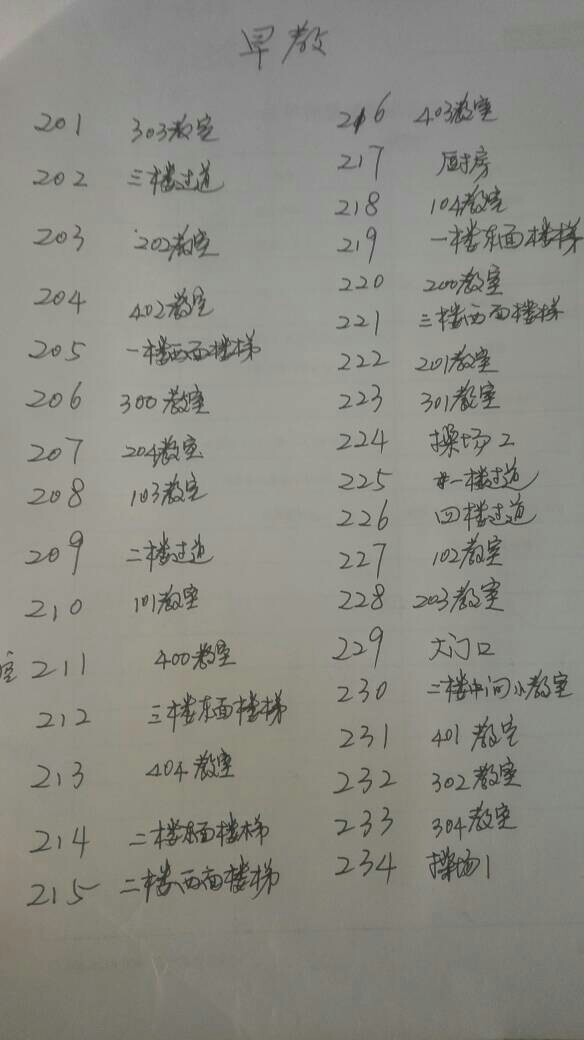 早教
201 303教室
202 三楼过道
203 202教室
204 402教室
205 一楼西面楼梯
206 300教室
207 204教室
208 103教室
209 二楼过道
210 101教室
室 211 400教室
212 三楼东面楼梯
213 404教室
214 二楼东面楼梯
215 二楼西面楼梯
216 403教室
217 厨房
218 104教室
219 一楼东面楼梯
220 200教室
221 三楼西面楼梯
222 201教室
223 301教室
224 操场2
225 一楼过道
226 四楼过道
227 102教室
228 203教室
229 大门口
230 二楼中间小教室
231 401教室
232 302教室
233 304教室
234 操场1